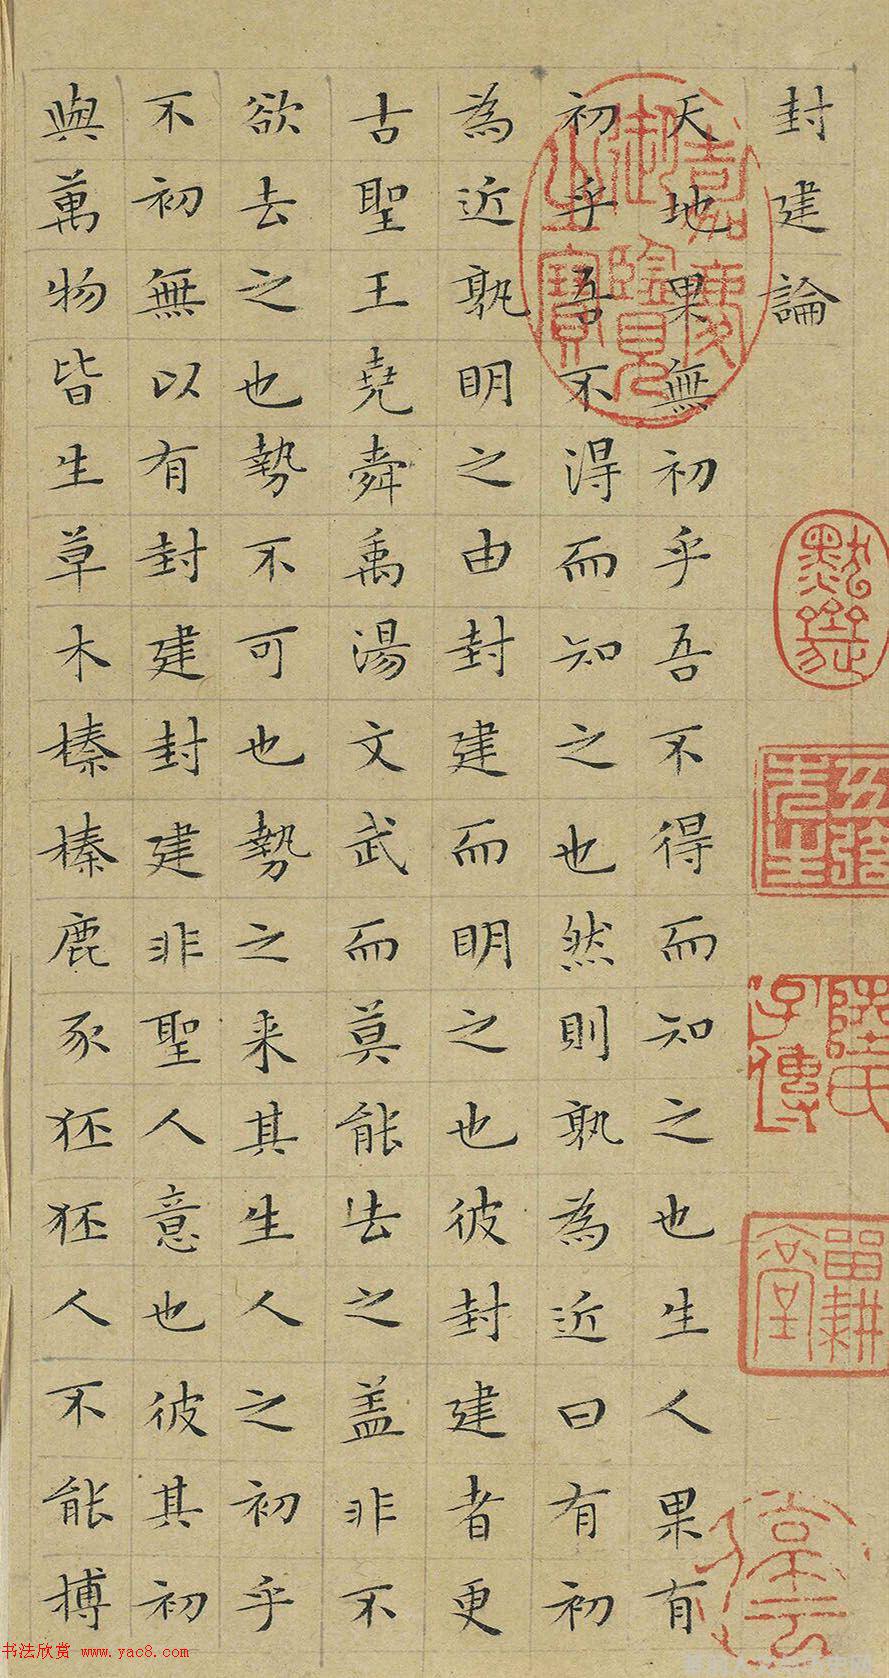 封建論
天地果無初乎吾不得而知之也生人果有
初乎吾不得而知之也然則孰為近曰有初
為近孰明之由封建而明之也彼封建者更
古聖王堯舜禹湯文武而莫能去之盖非不
欲去之也勢不可也勢之来其生人之初乎
不初無以有封建封建非聖人意也彼其初
與萬物皆生草木榛榛鹿豕狉狉人不能搏
嘉慶御覽之寶
陸氏子傳
留耕堂
书法欣赏 www.yac8.com